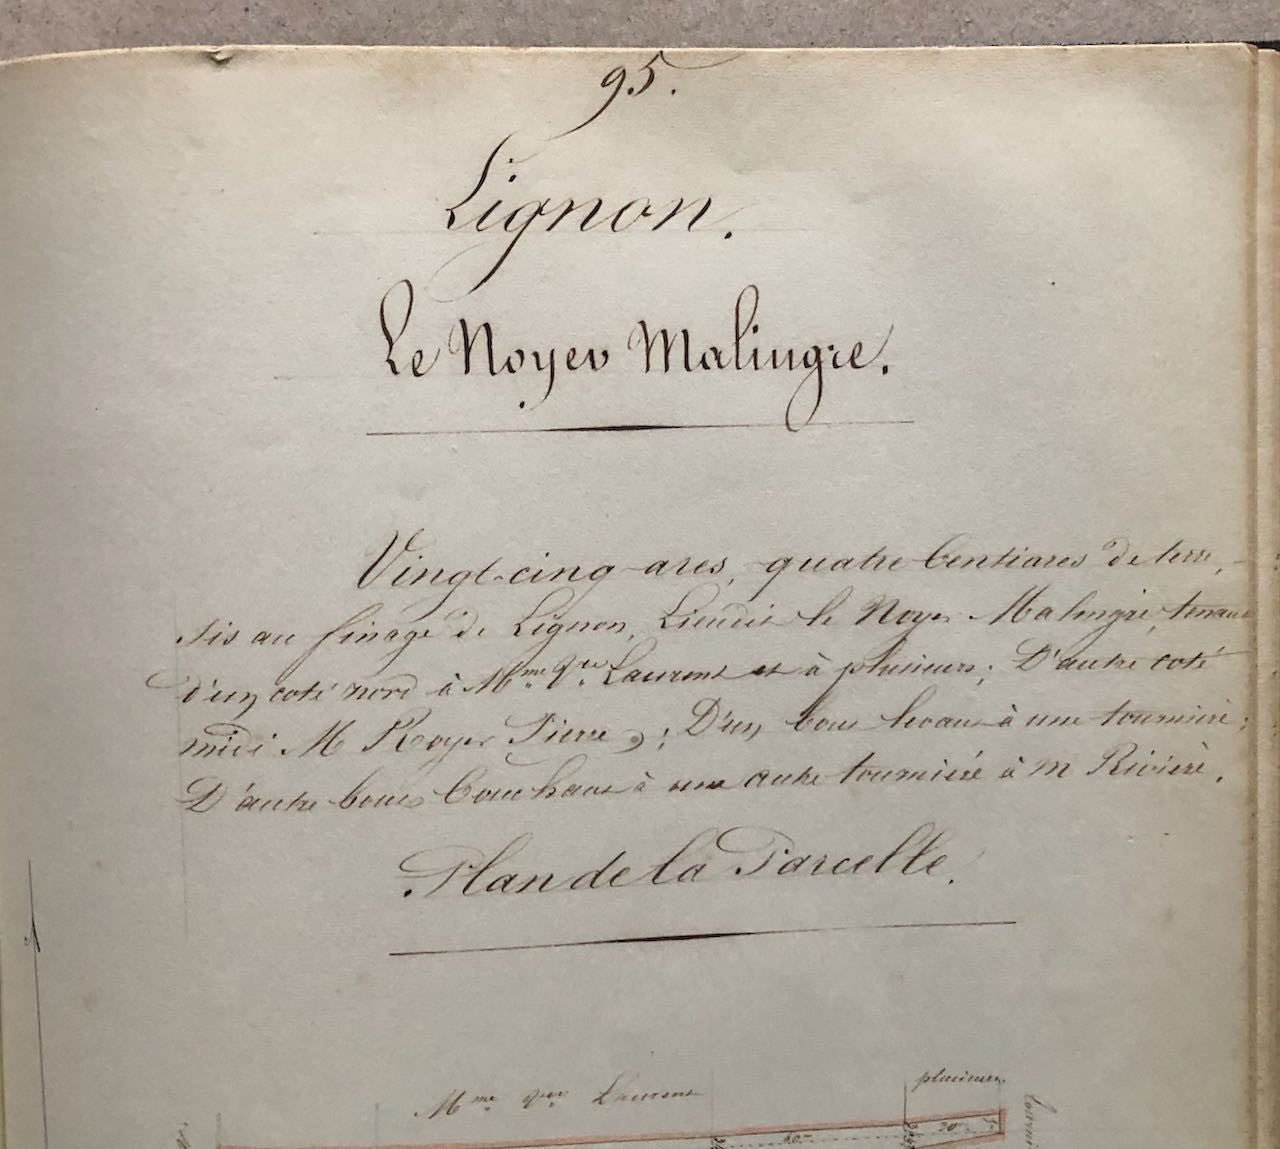 95.
Lignon.
Le Noyer Malingre.
Vingt-cinq ares, quatre Centiares de terre,
sis au finage de Lignon, Lieudit le Noyer Malingre, tenant
d'un coté nord à Mme Vve Laurent et à plusieurs; D'autre coté
midi M Royer Pierre; D'un bout levant à une tournière;
D'autre bout Couchant à une autre tournière à M Rivière.
Plan de la Parcelle.
plusieurs
Mme Vve Laurent
20
60